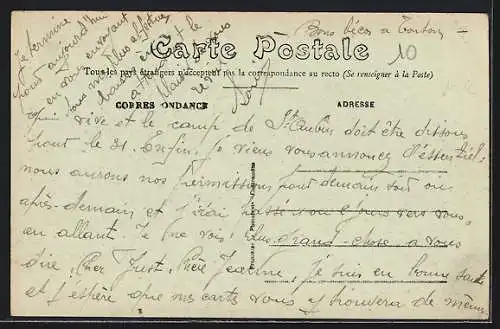 Bons bécos à Tonton
10
Carte Postale
Tous les pays étrangers n'acceptent pas la correspondance au recto (Se renseigner à la Poste)
CORRESPONDANCE
ADRESSE
qui vive et le camp de St Aubin doit être dissous
pour le 21. Enfin. Je viens vous annoncer l'essentiel:
nous aurons nos permissions pour demain soir ou
après-demain et j'irai passer vous vers vous
en allant. Je ne vois plus grand-chose à vous
dire, Cher Just, Chère Jeanne, Je suis en bonne santé
et j'espère que ma carte vous y trouvera de même.
Je termine
pour aujourd'hui
en vous envoyant
tous mes